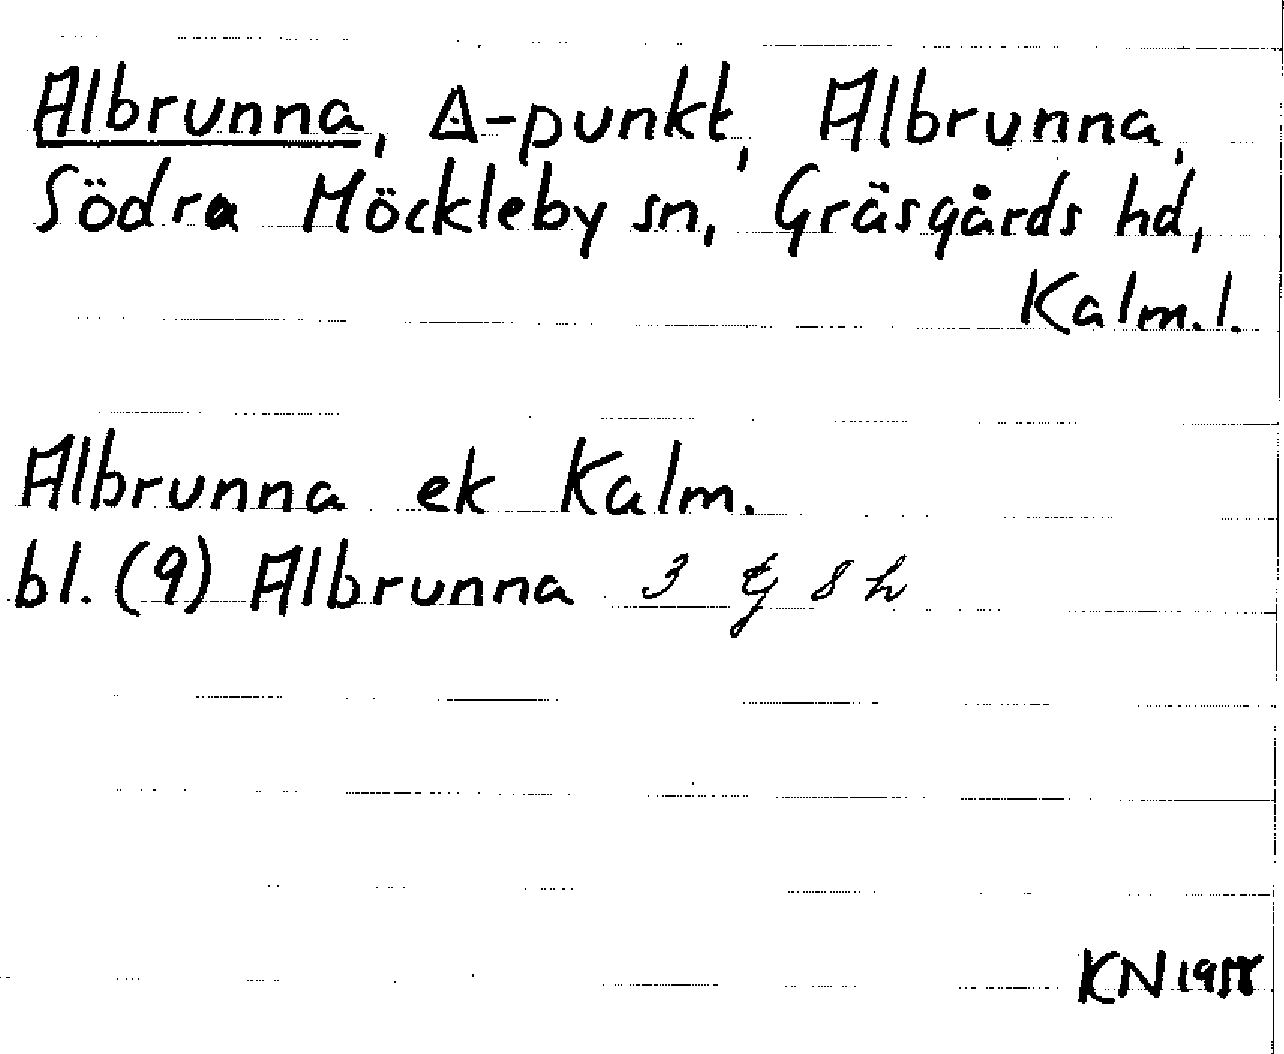 Albrunna, Δ-punkt, Albrunna,
Södra Möckleby sn, Gräsgårds hd,
Kalm.l.
Albrunna ek Kalm.
bl. (9) Albrunna 3 G 8 h
KN 1958